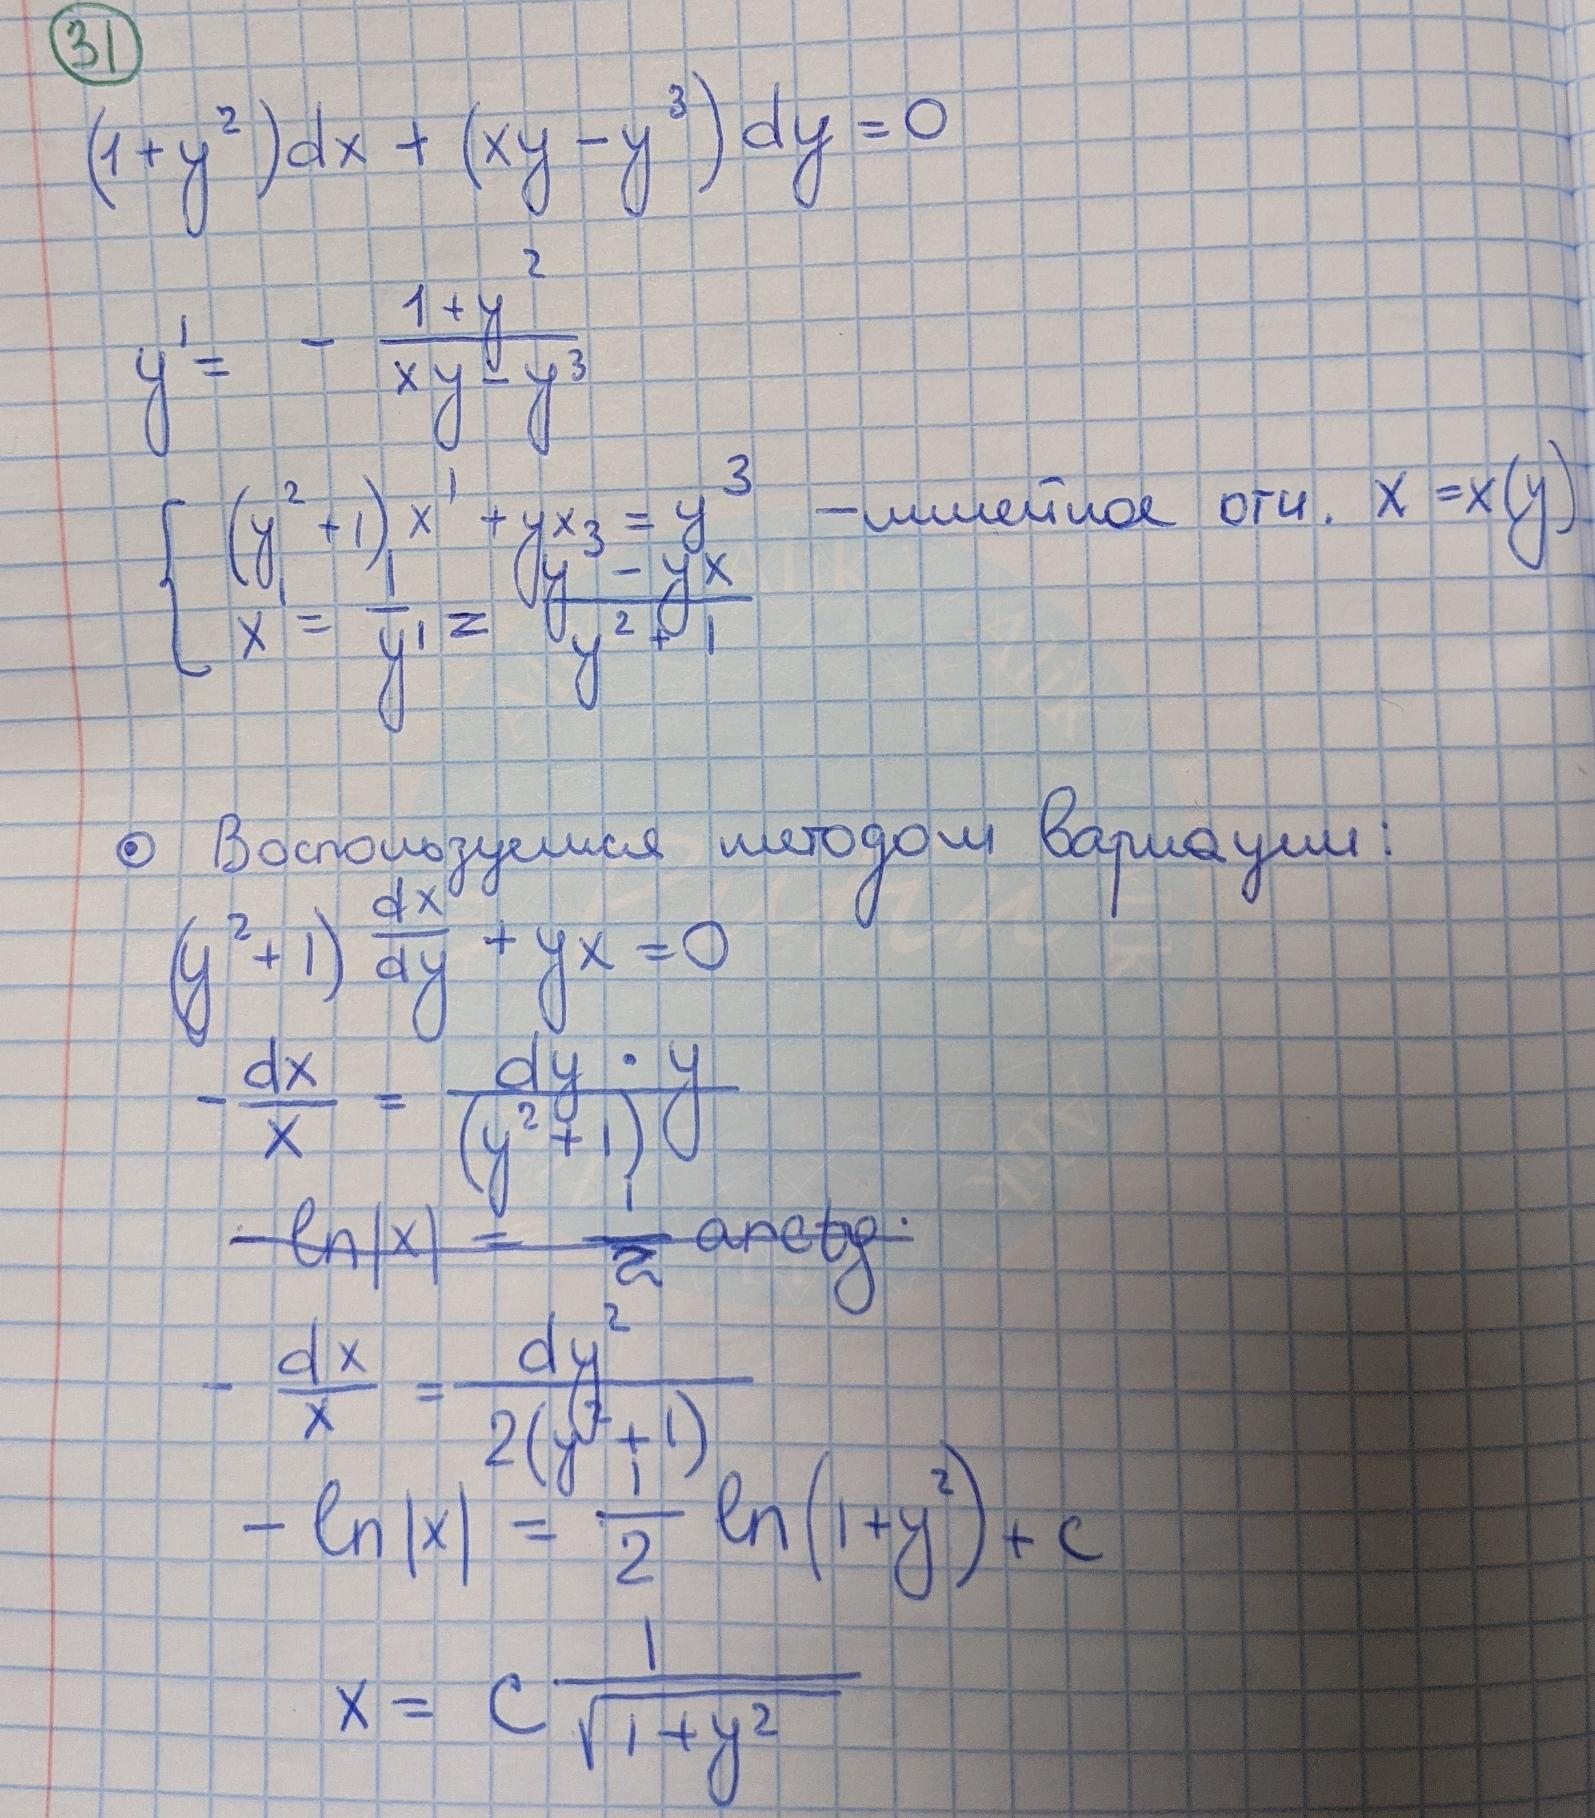 31
(1+y²)dx + (xy-y³)dy=0
y' = - \frac{1+y²}{xy-y³}
{ (y²+1)x' + yx = y³ - линейное отн. x = x(y)
x' = \frac{1}{y'} = \frac{y³-yx}{y²+1}
⊙ Воспользуемся методом вариации:
(y²+1) \frac{dx}{dy} + yx = 0
- \frac{dx}{x} = \frac{dy · y}{(y²+1)}
-ln|x| = \frac{1}{2} arctg
- \frac{dx}{x} = \frac{dy²}{2(y²+1)}
- ln|x| = \frac{1}{2} ln(1+y²) + c
x = C \frac{1}{\sqrt{1+y²}}